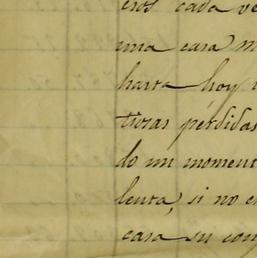 cros cada ve
una casa m
hasta hoy
tiosas pérdidas
do un moment
lenta, si no e
casa su con